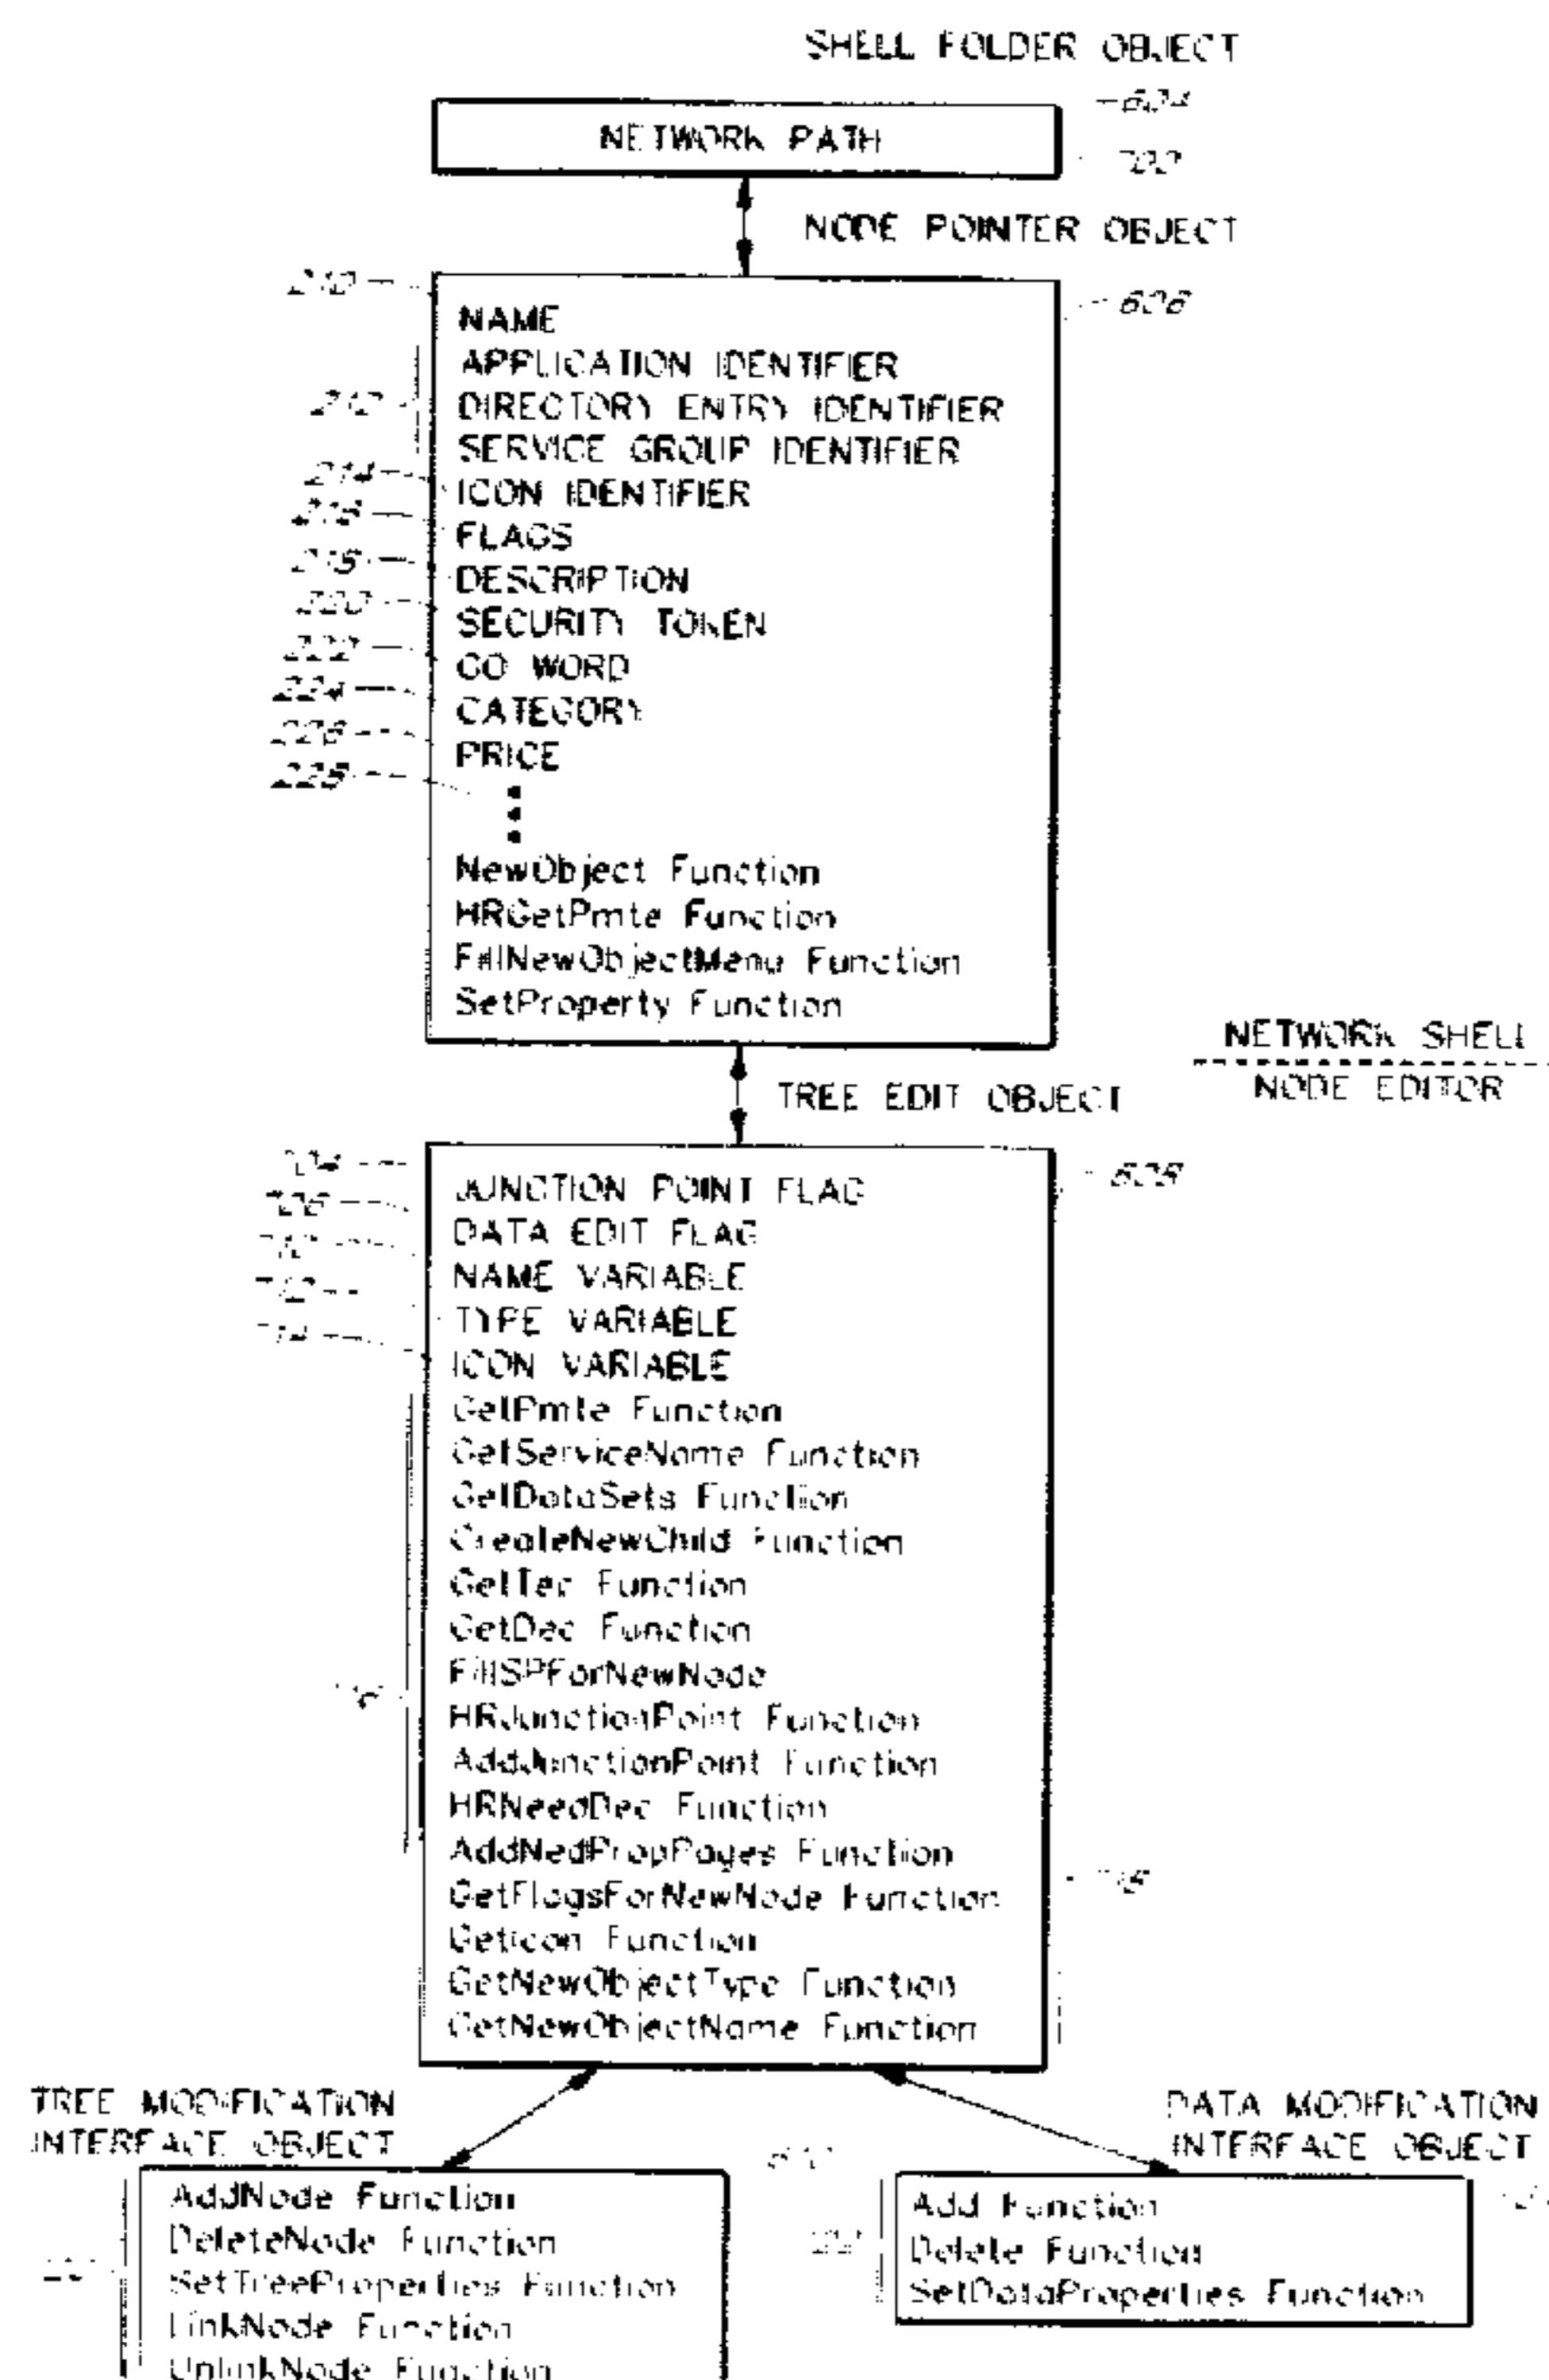 SHELL FOLDER OBJECT
604
NETWORK PATH
702
NODE POINTER OBJECT
210
606
NAME
APPLICATION IDENTIFIER
212
DIRECTORY ENTRY IDENTIFIER
SERVICE GROUP IDENTIFIER
214
ICON IDENTIFIER
FLAGS
DESCRIPTION
220
SECURITY TOKEN
222
GO WORD
224
CATEGORY
226
PRICE
228
NewObject Function
HRGetPmte Function
FillNewObjectMenu Function
SetProperty Function
NETWORK SHELL
NODE EDITOR
TREE EDIT OBJECT
608
JUNCTION POINT FLAG
DATA EDIT FLAG
NAME VARIABLE
TYPE VARIABLE
ICON VARIABLE
GetPmte Function
GetServiceName Function
GetDataSets Function
CreateNewChild Function
GetTec Function
GetDec Function
FillSPForNewNode
HRJunctionPoint Function
AddJunctionPoint Function
HRNeedDec Function
AddNedPropPages Function
GetFlagsForNewNode Function
GetIcon Function
GetNewObjectType Function
GetNewObjectName Function
TREE MODIFICATION
INTERFACE OBJECT
DATA MODIFICATION
INTERFACE OBJECT
AddNode Function
DeleteNode Function
SetTreeProperties Function
LinkNode Function
UnlinkNode Function
Add Function
Delete Function
SetDataProperties Function